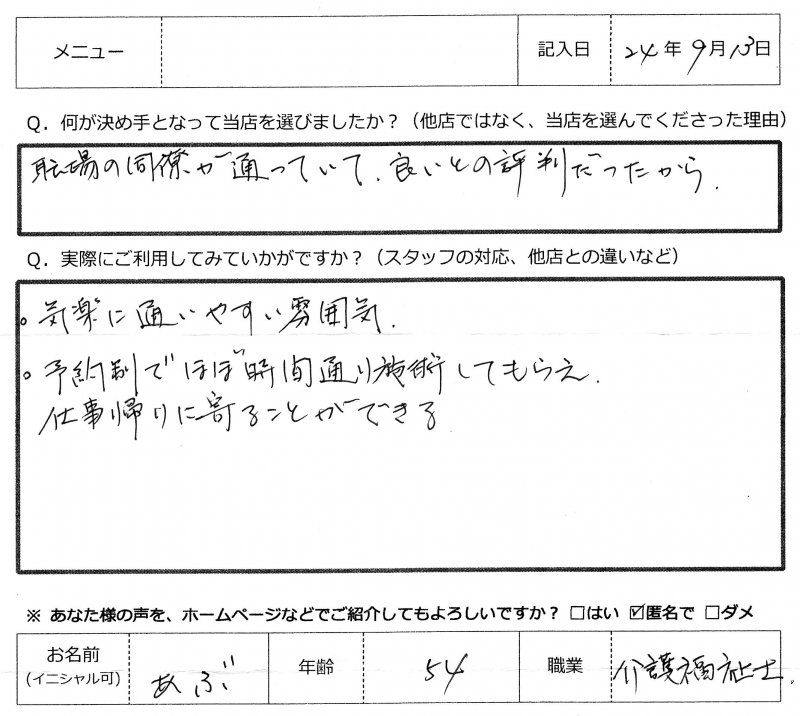 メニュー 記入日 24年9月13日
Q．何が決め手となって当店を選びましたか？（他店ではなく、当店を選んでくださった理由）
職場の同僚が通っていて、良いとの評判だったから、
Q．実際にご利用してみていかがですか？（スタッフの対応、他店との違いなど）
○気楽に通いやすい雰囲気、
○予約制でほぼ時間通り施術してもらえ、
仕事帰りに寄ることができる
※ あなた様の声を、ホームページなどでご紹介してもよろしいですか？ □はい ☑匿名で □ダメ
お名前 あぶ 年齢 54 職業 介護福祉士、
(イニシャル可)